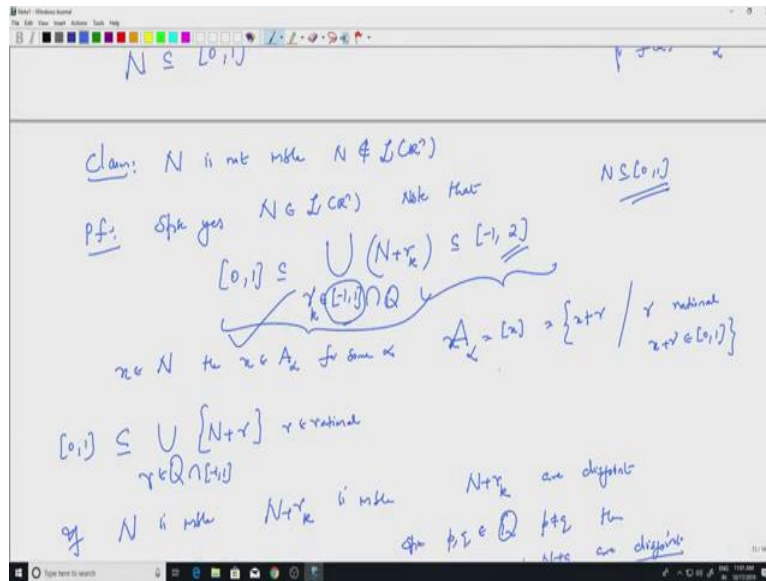 Note1 - Windows Journal
File Edit View Insert Actions Tools Help
N ⊆ [0,1]
Claim: N is not mble N ∉ L(Rⁿ)
N ⊆ [0,1]
Pf: Spse yes N ∈ L(Rⁿ) Note that
[0,1] ⊆ ⋃ (N+r_k) ⊆ [-1, 2]
r_k ∈ [-1,1] ∩ Q
x ∈ N the x ∈ A_α for some α A_α = [x] = {x+r / r rational
x+r ∈ [0,1]}
[0,1] ⊆ ⋃ [N+r] r ∈ rational
r ∈ Q ∩ [-1,1]
If N is mble N+r_k is mble N+r_k are disjoint
p,q ∈ Q p≠q the
N+q are disjoint
Type here to search
11:01 AM